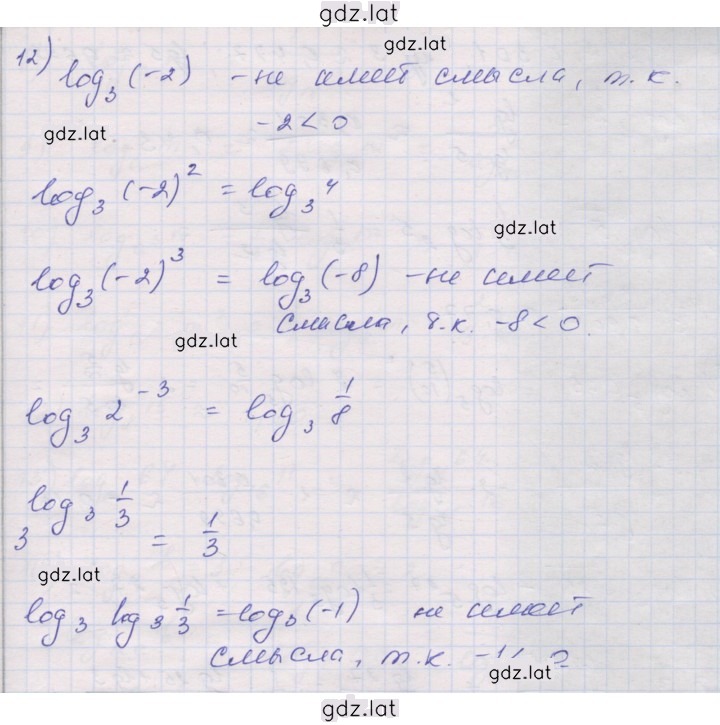 gdz.lat
gdz.lat
12) log₃(-2) - не имеет смысла, т.к.
gdz.lat
-2 < 0
log₃(-2)² = log₃4
gdz.lat
log₃(-2)³ = log₃(-8) - не имеет
смысла, т.к. -8 < 0.
gdz.lat
log₃ 2⁻³ = log₃ 1/8
3^(log₃ 1/3) = 1/3
gdz.lat
log₃ log₃ 1/3 = log₃(-1) не имеет
смысла, т.к. -1
gdz.lat
gdz.lat